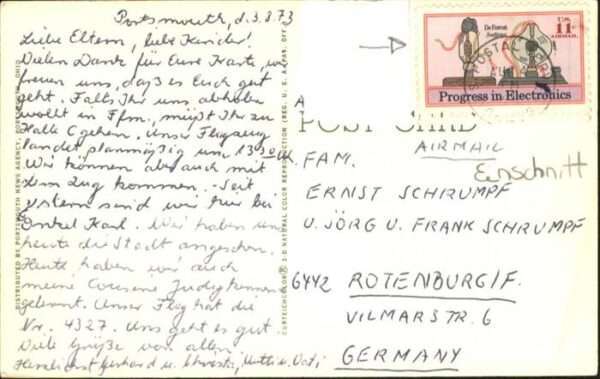 Portsmouth, d. 3.8.73
Liebe Eltern, liebe Kinder!
Vielen Dank für Eure Karte, wir
freuen uns, daß es Euch gut
geht. Falls Ihr uns abholen
wollt in Ffm., müßt Ihr zu
Halle C gehen. Unser Flugzeug
landet planmäßig um 13.30 Uhr.
Wir können aber auch mit
dem Zug kommen. Seit
gestern sind wir hier bei
Onkel Karl. Wir haben uns
heute die Stadt angesehen.
Heute haben wir auch
meine Cousine Judy kennen
gelernt. Unser Flug hat die
Nr. 4327. Uns geht es gut
Viele Grüße von allen
Herzlichst Gerhard u. Christa, Mutti u. Vati
DISTRIBUTED BY PORTSMOUTH NEWS AGENCY, PORTSMOUTH, OHIO
CURTEICHCOLOR® 3-D NATURAL COLOR REPRODUCTION (REG. U.S.A. PAT. OFF.)
De Forest
Audions
U.S.
11¢
AIRMAIL
POSTAL
Progress in Electronics
A
POST CARD
AIRMAIL
Einschnitt
FAM.
ERNST SCHRUMPF
U. JÖRG U. FRANK SCHRUMPF
6442 ROTENBURG/F.
VILMARSTR. 6
GERMANY